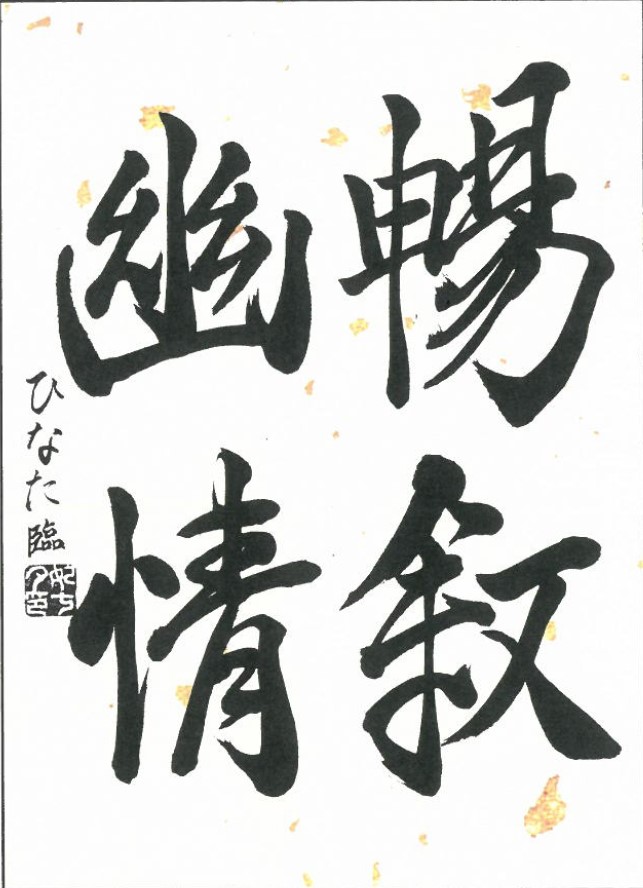 暢叙
幽情
ひなた臨